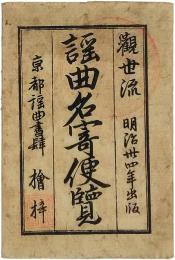 觀世流
明治卅四年出版
謡曲名寄便覽
京都謡曲書肆
檜梓